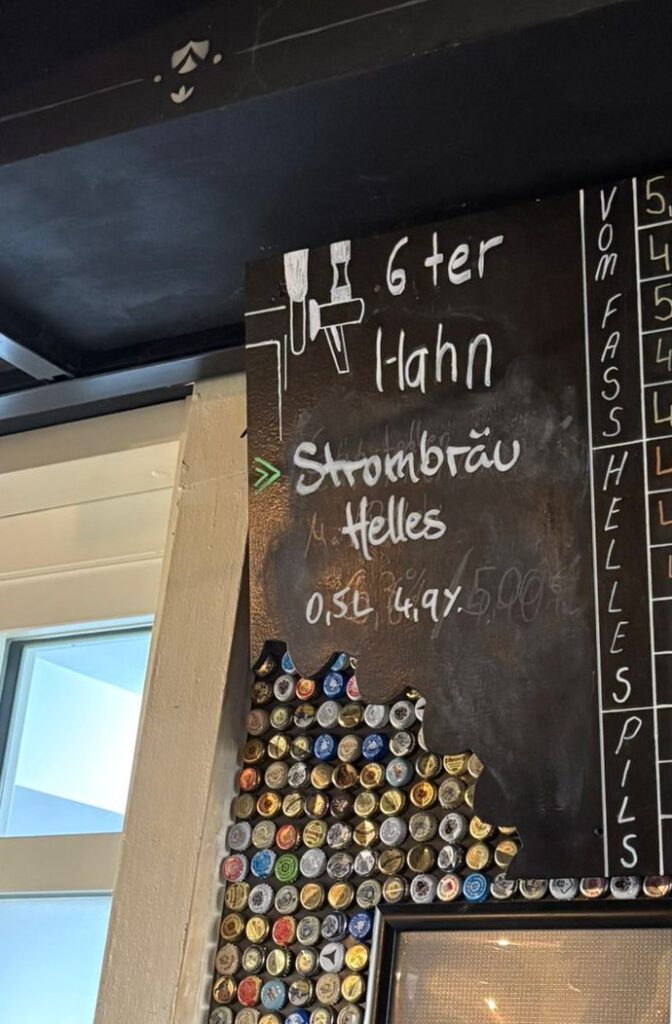 6ter
Hahn
Strombräu
Helles
0,5L 4,9%
VOM FASS
HELLES
PILS
5,
4
5
4
4